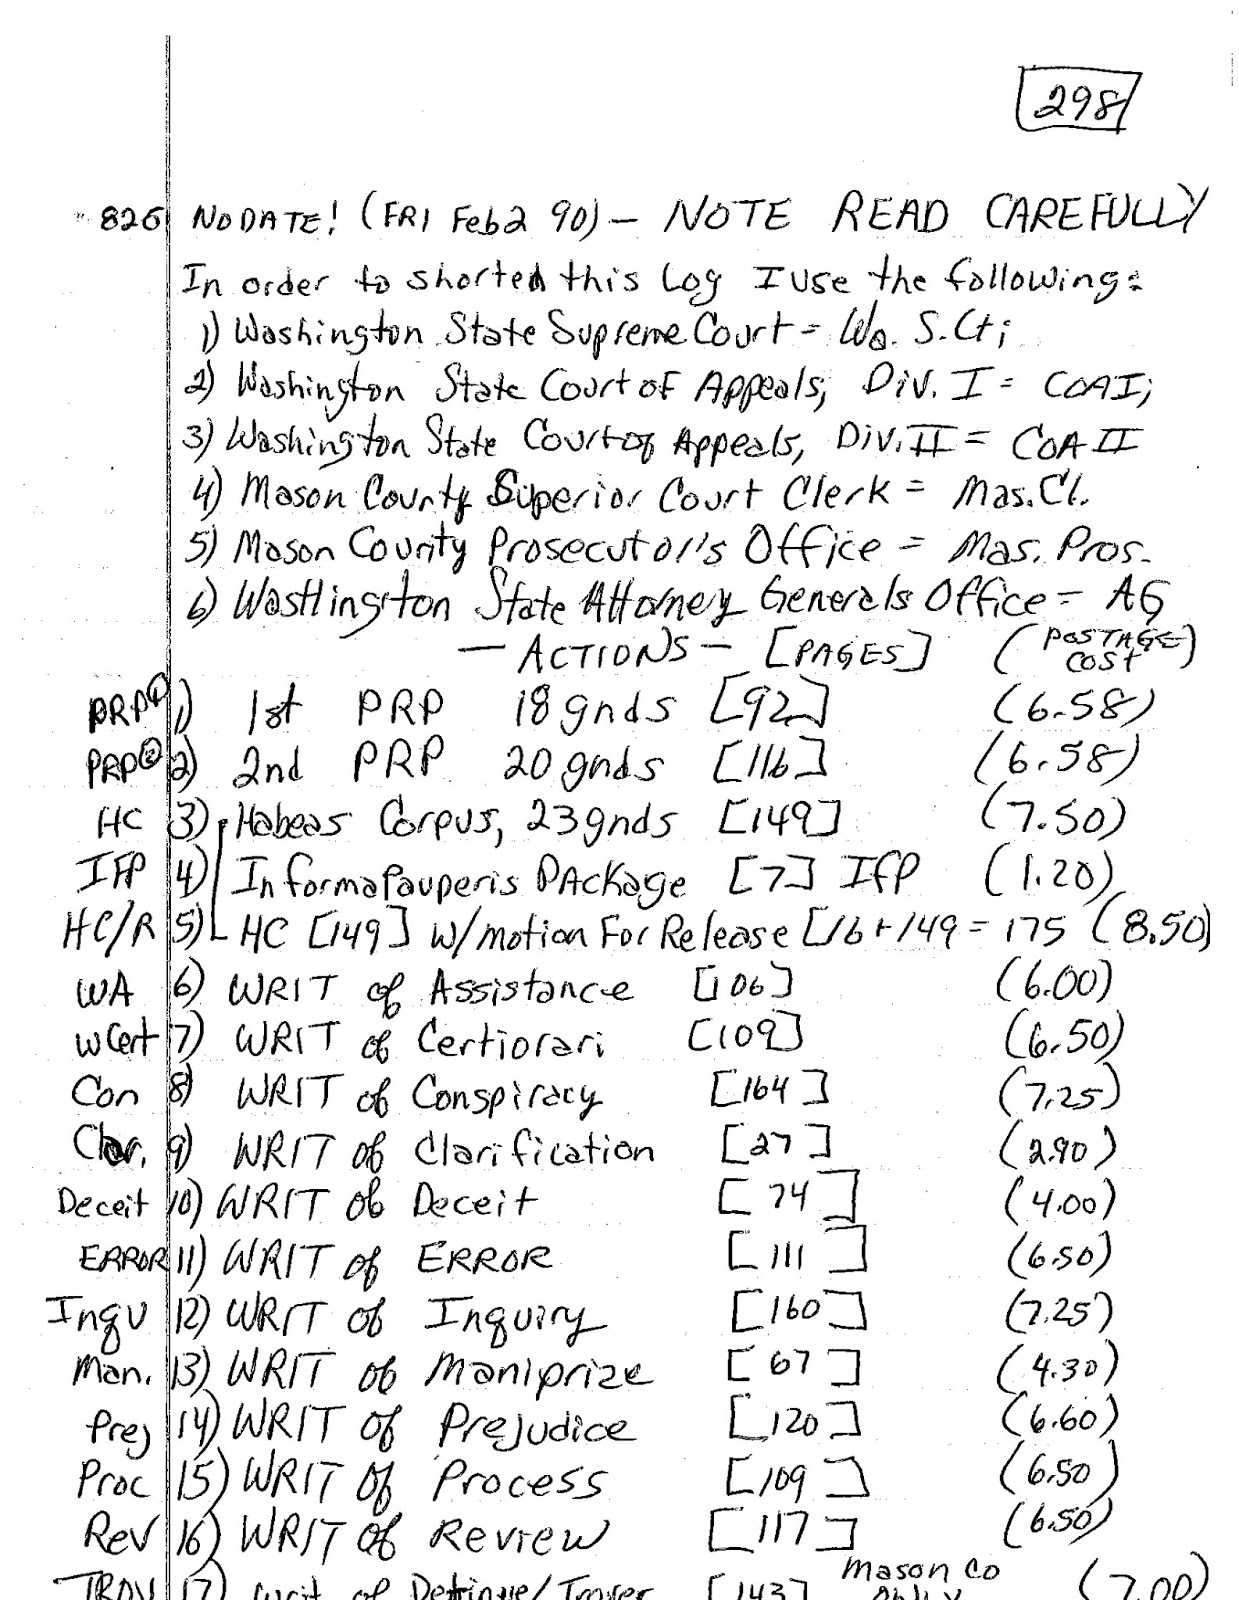 298
826 NO DATE! (FRI Feb 2 90) — NOTE READ CAREFULLY
In order to shorten this Log I use the following:
1) Washington State Supreme Court = Wa. S.Ct;
2) Washington State Court of Appeals, Div. I = COAI;
3) Washington State Court of Appeals, Div. II = COA II
4) Mason County Superior Court Clerk = Mas. Cl.
5) Mason County Prosecutor's Office = Mas. Pros.
6) Washington State Attorney Generals Office = AG
— ACTIONS — [PAGES] (POSTAGE COST)
PRP① 1) 1st PRP 18 gnds [92] (6.58)
PRP② 2) 2nd PRP 20 gnds [116] (6.58)
HC 3) Habeas Corpus, 23 gnds [149] (7.50)
IFP 4) In forma Pauperis PACKage [7] IFP (1.20)
HC/R 5) HC [149] w/motion For Release [16 + 149 = 175 (8.50)
WA 6) WRIT of Assistance [106] (6.00)
wCert 7) WRIT of Certiorari [109] (6.50)
Con 8) WRIT of Conspiracy [164] (7.25)
Clar. 9) WRIT of Clarification [27] (2.90)
Deceit 10) WRIT of Deceit [74] (4.00)
ERROR 11) WRIT of ERROR [111] (6.50)
Inqu 12) WRIT of Inquiry [160] (7.25)
Man. 13) WRIT of Maniprize [67] (4.30)
Prej 14) WRIT of Prejudice [120] (6.60)
Proc 15) WRIT of Process [109] (6.50)
Rev 16) WRIT of Review [117] (6.50)
TROV 17) Writ of Detinue/Trover [143] Mason Co only (7.00)